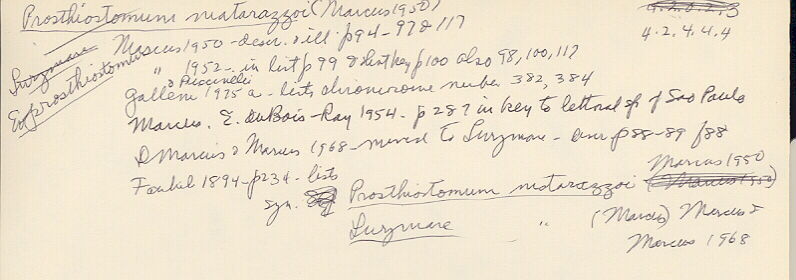 Prosthiostomum matarazzoi (Marcus 1950)
4.2.4.4.4
Lurymare
Euprosthiostomum
Marcus 1950 - descr. & ill p94-97 & 117
" 1952 - in list p 99 & dist key p100 also 98, 100, 117
Galleni & Puccinelli 1975 a - lists chromosome number 382, 384
Marcus, E. duBois-Ray 1954 - p 287 in key to littoral sp of Sao Paulo
D Marcus & Marcus 1968 - moved to Lurymare - p88-89 f88
Faubel 1894 - p234 - lists
syn. Prosthiostomum matarazzoi Marcus 1950
Lurymare " (Marcus) Marcus &
Marcus 1968